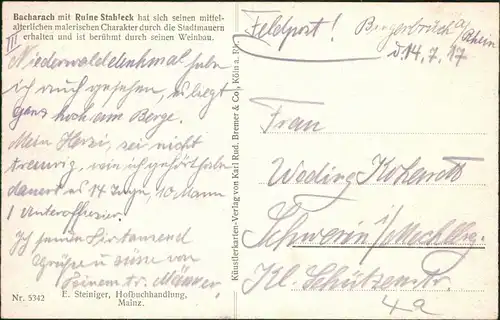 Bacharach mit Ruine Stahleck hat sich seinen mittel-
alterlichen malerischen Charakter durch die Stadtmauern
erhalten und ist berühmt durch seinen Weinbau.
III
Niederwalddenkmal habe
ich auch gesehen, es liegt
ganz hoch am Berge.
Mein Herzi, sei nicht
traurig, wie ich gehört habe
dauert es 14 Tage, 10 Mann
1 Unteroffizier.
Ich sende Dir tausend
Grüße u.
Deinem tr. Männe.
Nr. 5342
E. Steiniger, Hofbuchhandlung,
Mainz.
Künstlerkarten-Verlag von Karl Rud. Bremer & Co., Köln a. Rh.
Feldpost!
Bingerbrück a/Rhein
d. 14. 7. 17
Frau
Schwerin i/Mecklbg.
Kl. Schützenstr.
4a